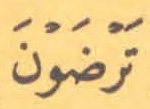 تَرْضَوْنَ